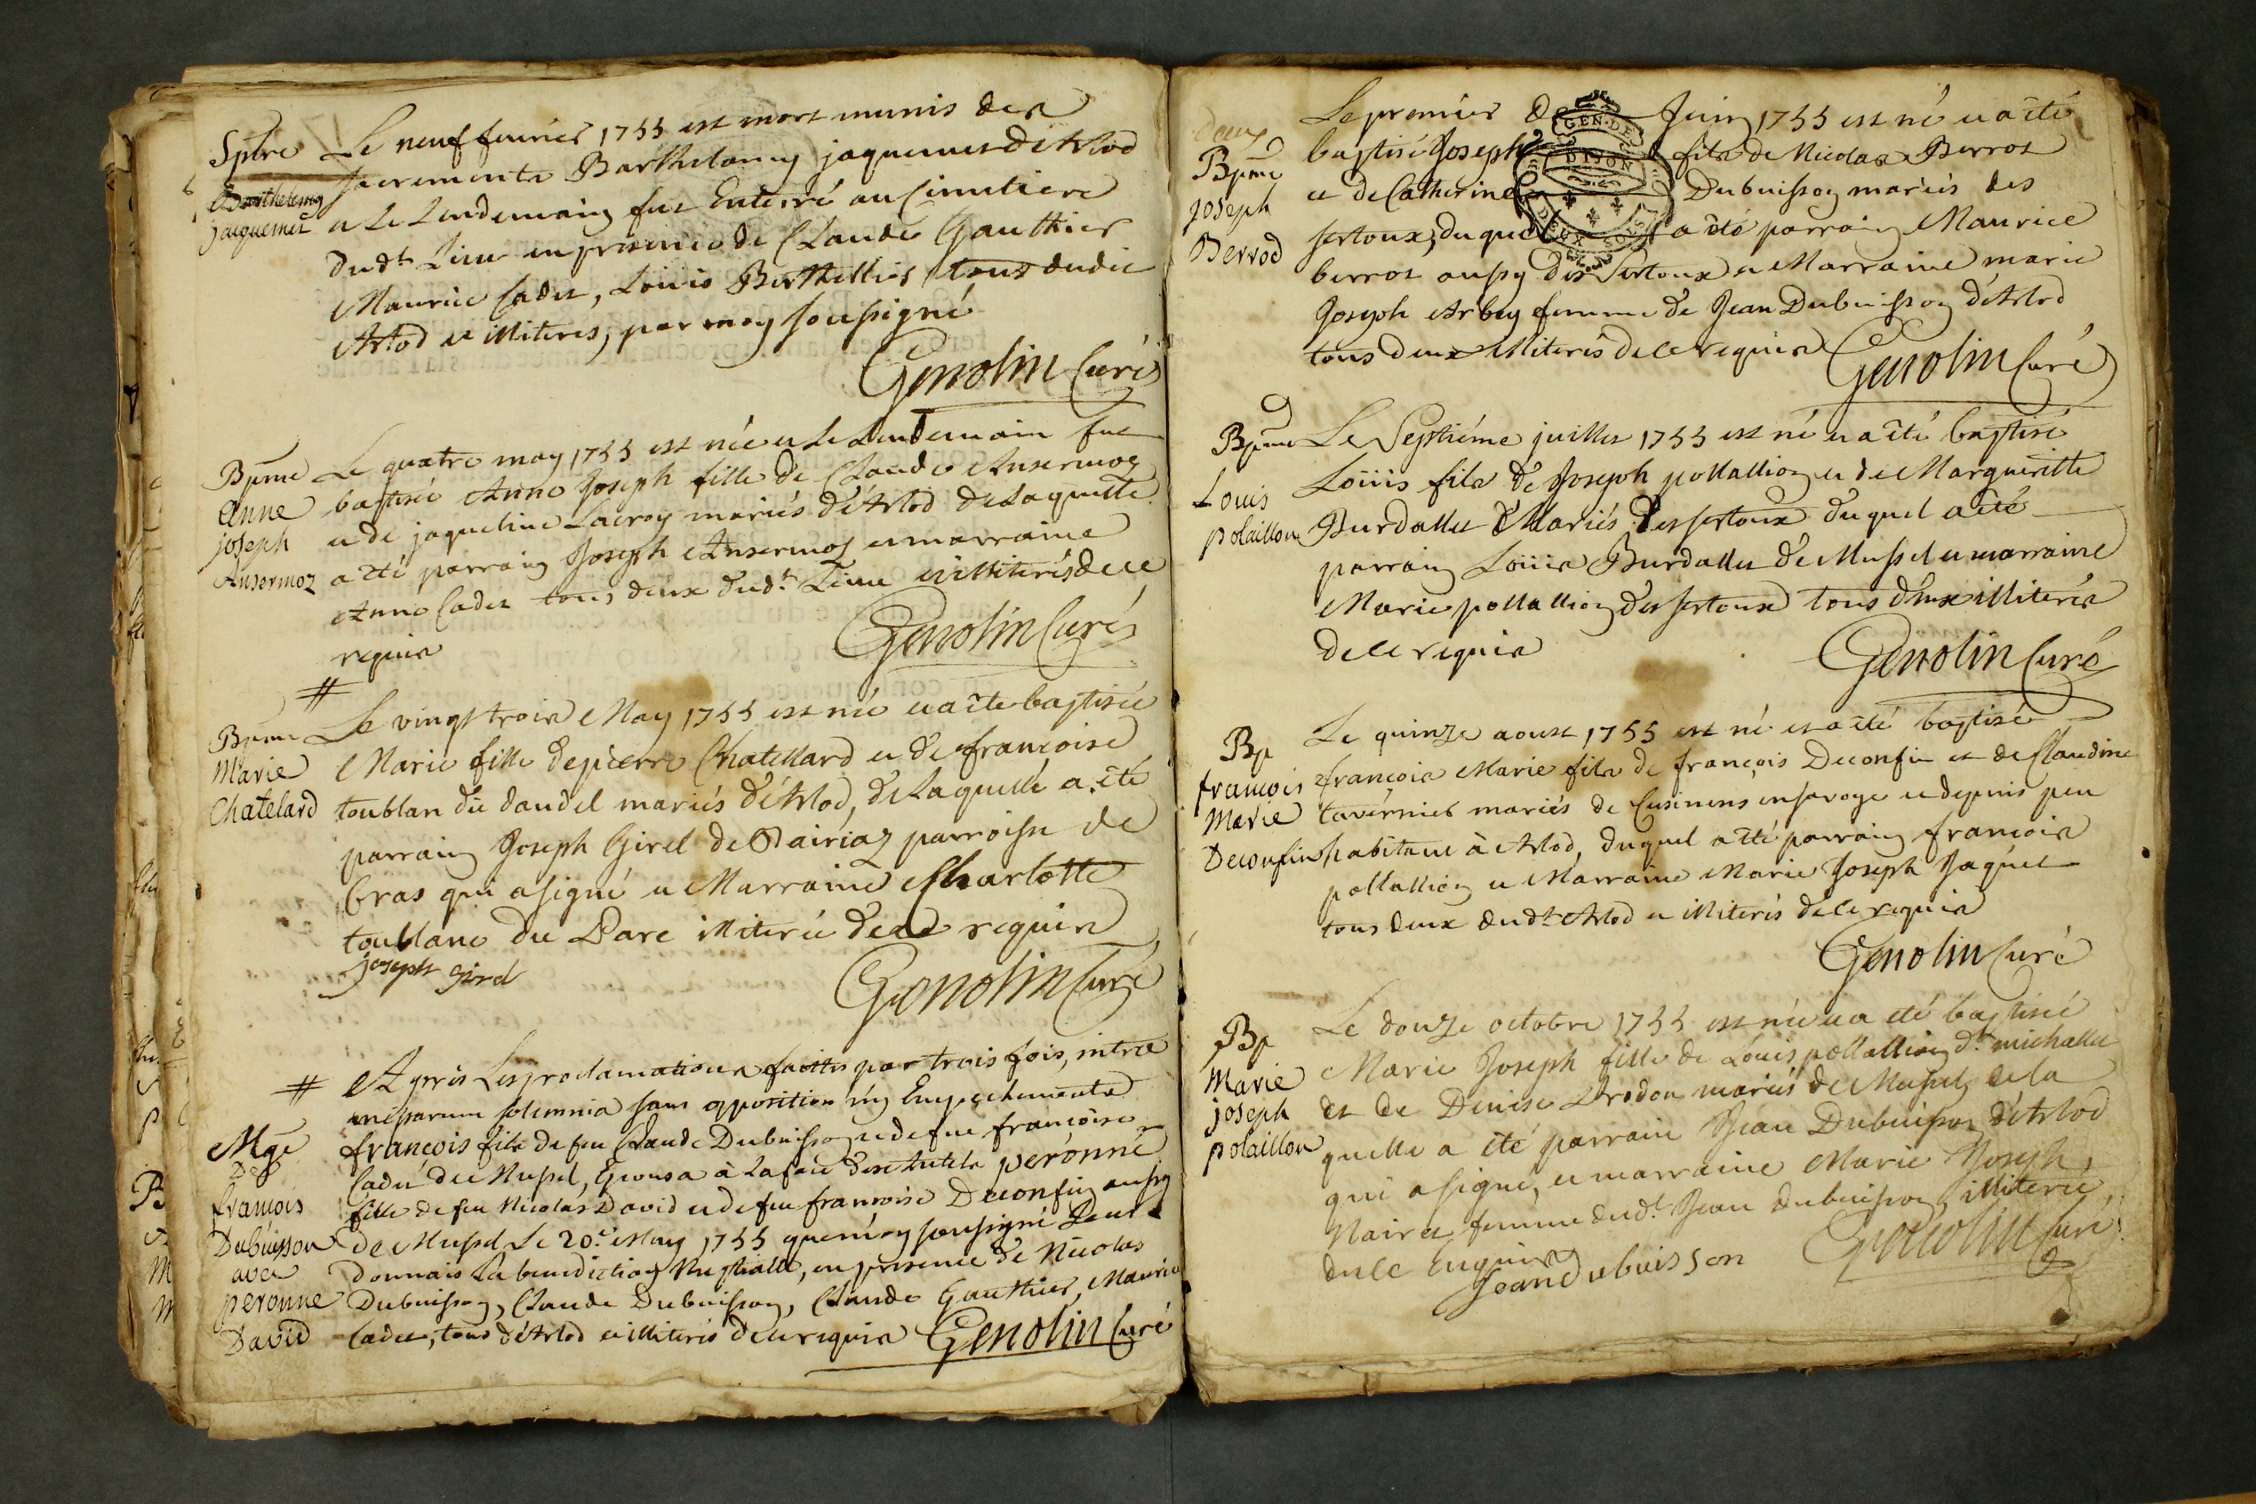 Spltre
Barthelemy
Jaquemet
Le neuf feurier 1755 est mort munis des
sacrements Barthelemy jaquemet d'Arlod
et le Lendemain fut Enterré au Cimetiere
dudt. Lieu en presence de Claude Gauthier
Maurice Cadet, Loüis Berthellier tous dudit
Arlod et illiterés, par moy soussigné
Genolin Curé
Bpme
Anne
joseph
Ansermoz
Le quatre may 1755 est née et le Lendemain fut
baptisée Anne Joseph fille de Claude Ansermoz
et de jaqueline Lacroy mariés d'Arlod de Laquelle
a été parrain Joseph Ansermoz et marraine
Anne Cadet tous deux dudt. Lieu et illiterés de ce
requis
Genolin Curé
#
Bpme
Marie
Chatelard
Le vingt trois May 1755 est née et a éte baptisée
Marie fille de pierre Chatellard et de francoise
toublan du daudel mariés d'Arlod, de Laquelle a été
parrain Joseph Girel de Dairiaz parroisse de
Cras qui a signé et Marraine Charlotte
toublanc du Parc illiterée de ce requis
joseph girel
Genolin Curé
#
Mge
De
francois
Dubuisson
avec
peronne
David
Après Les proclamations faittes par trois fois, intra
missarum solemnia sans opposition ny Empechements
francois fils de feu Claude Dubuisson et de feu francoise
Cadet de Mussel, Epousa à la face des Autels peronne
fille de feu Nicolas David et de feu francoise Deconfin aussy
de Mussel Le 20e. May 1755 que moy soussigné Leur
donnais La benediction Nuptialle, en presence de Nicolas
Dubuisson, Claude Dubuisson, Claude Gauthier, Maurice
Cadet, tous d'Arlod et illiterés de ce requis Genolin Curé
deux
Bpme
joseph
Berrod
Le premier de Juin 1755 est né et a été
baptisé Joseph fils de Nicolas Berrot
et de Catherine Dubuisson mariés des
sertoux, duquel a été parrain Maurice
berrot aussy des Sertoux et Marraine marie
Joseph Arbey femme de Jean Dubuisson d'Arlod
tous deux illiterés de ce requis
Genolin Curé
GEN. DE
DIJON
DEUX SOLS
Bpme
Louis
polaillon
Le Septiéme juillet 1755 est né et a été baptisé
Loüis fils de Joseph pollallion et de Margueritte
Burdallet Mariés des sertoux duquel a été
parrain Loüis Burdallet de Mussel et marraine
Marie pollallion des sertoux tous deux illiterés
de ce requis
Genolin Curé
Bp
francois
Marie
Deconfin
Le quinze aoust 1755 est né et a été baptisé
françois Marie fils de françois Deconfin et de Claudine
tavernier mariés de Cusinens en savoye et depuis peu
habitant à Arlod, duquel a été parrain francois
pollallion et Marraine Marie Joseph Jaquet
tous deux dudt. Arlod et illiterés de ce requis
Genolin Curé
Bp
Marie
joseph
polaillon
Le douze octobre 1755 est née et a eté baptisée
Marie Joseph fille de Louis pollallion dt. michallet
et de Denise Drodon mariés de Mussel, de la
quelle a été parrain Jean Dubuisson d'Arlod
qui a signé, et marraine Marie Joseph
Mairet femme dudt. Jean dubuisson, illiterée,
de ce Enquise
Jean dubuisson
Genolin Curé